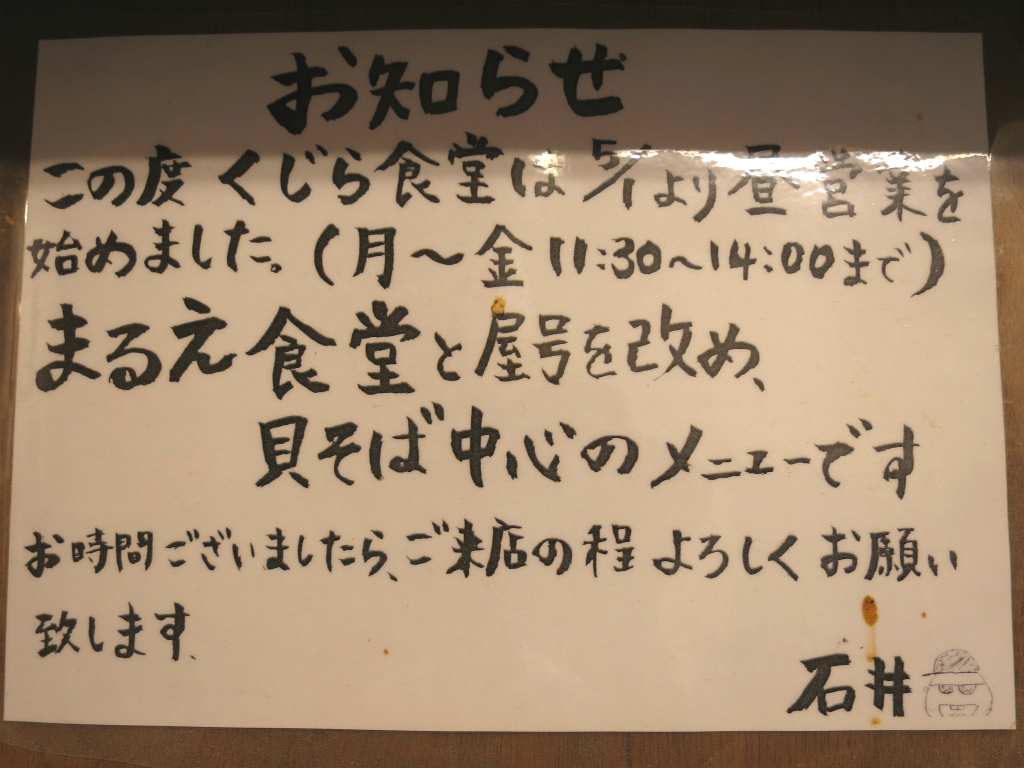 お知らせ
この度くじら食堂は5/1より昼営業を
始めました。(月〜金 11:30〜14:00まで)
まるえ食堂と屋号を改め、
貝そば中心のメニューです
お時間ございましたら、ご来店の程 よろしくお願い
致します、
石井